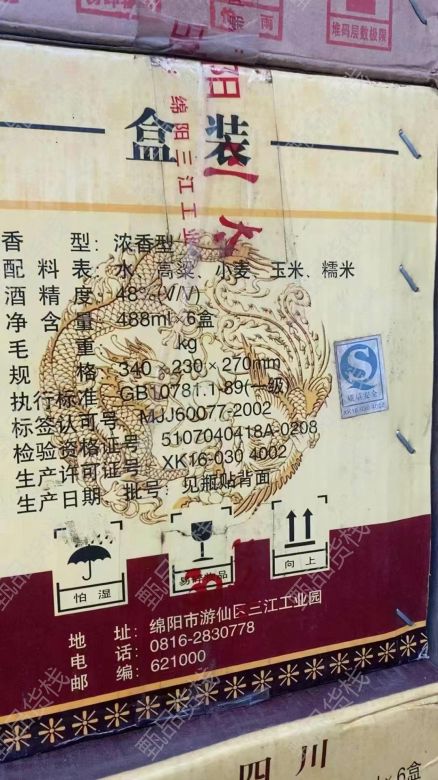 堆码层数极限
绵阳三江工业
盒装
香型：浓香型
配料表：水、高粱、小麦、玉米、糯米
酒精度：48%(V/V)
净含量：488ml×6盒
毛重：kg
规格：340×230×270mm
执行标准：GB10781.1-89(一级)
标签认可号：MJJ60077-2002
检验资格证号：5107040418A-0208
生产许可证号：XK16-030 4002
生产日期、批号：见瓶贴背面
质量安全
怕湿
向上
地址：绵阳市游仙区三江工业园
电话：0816-2830778
邮编：621000
四川
×6盒
甄品货栈